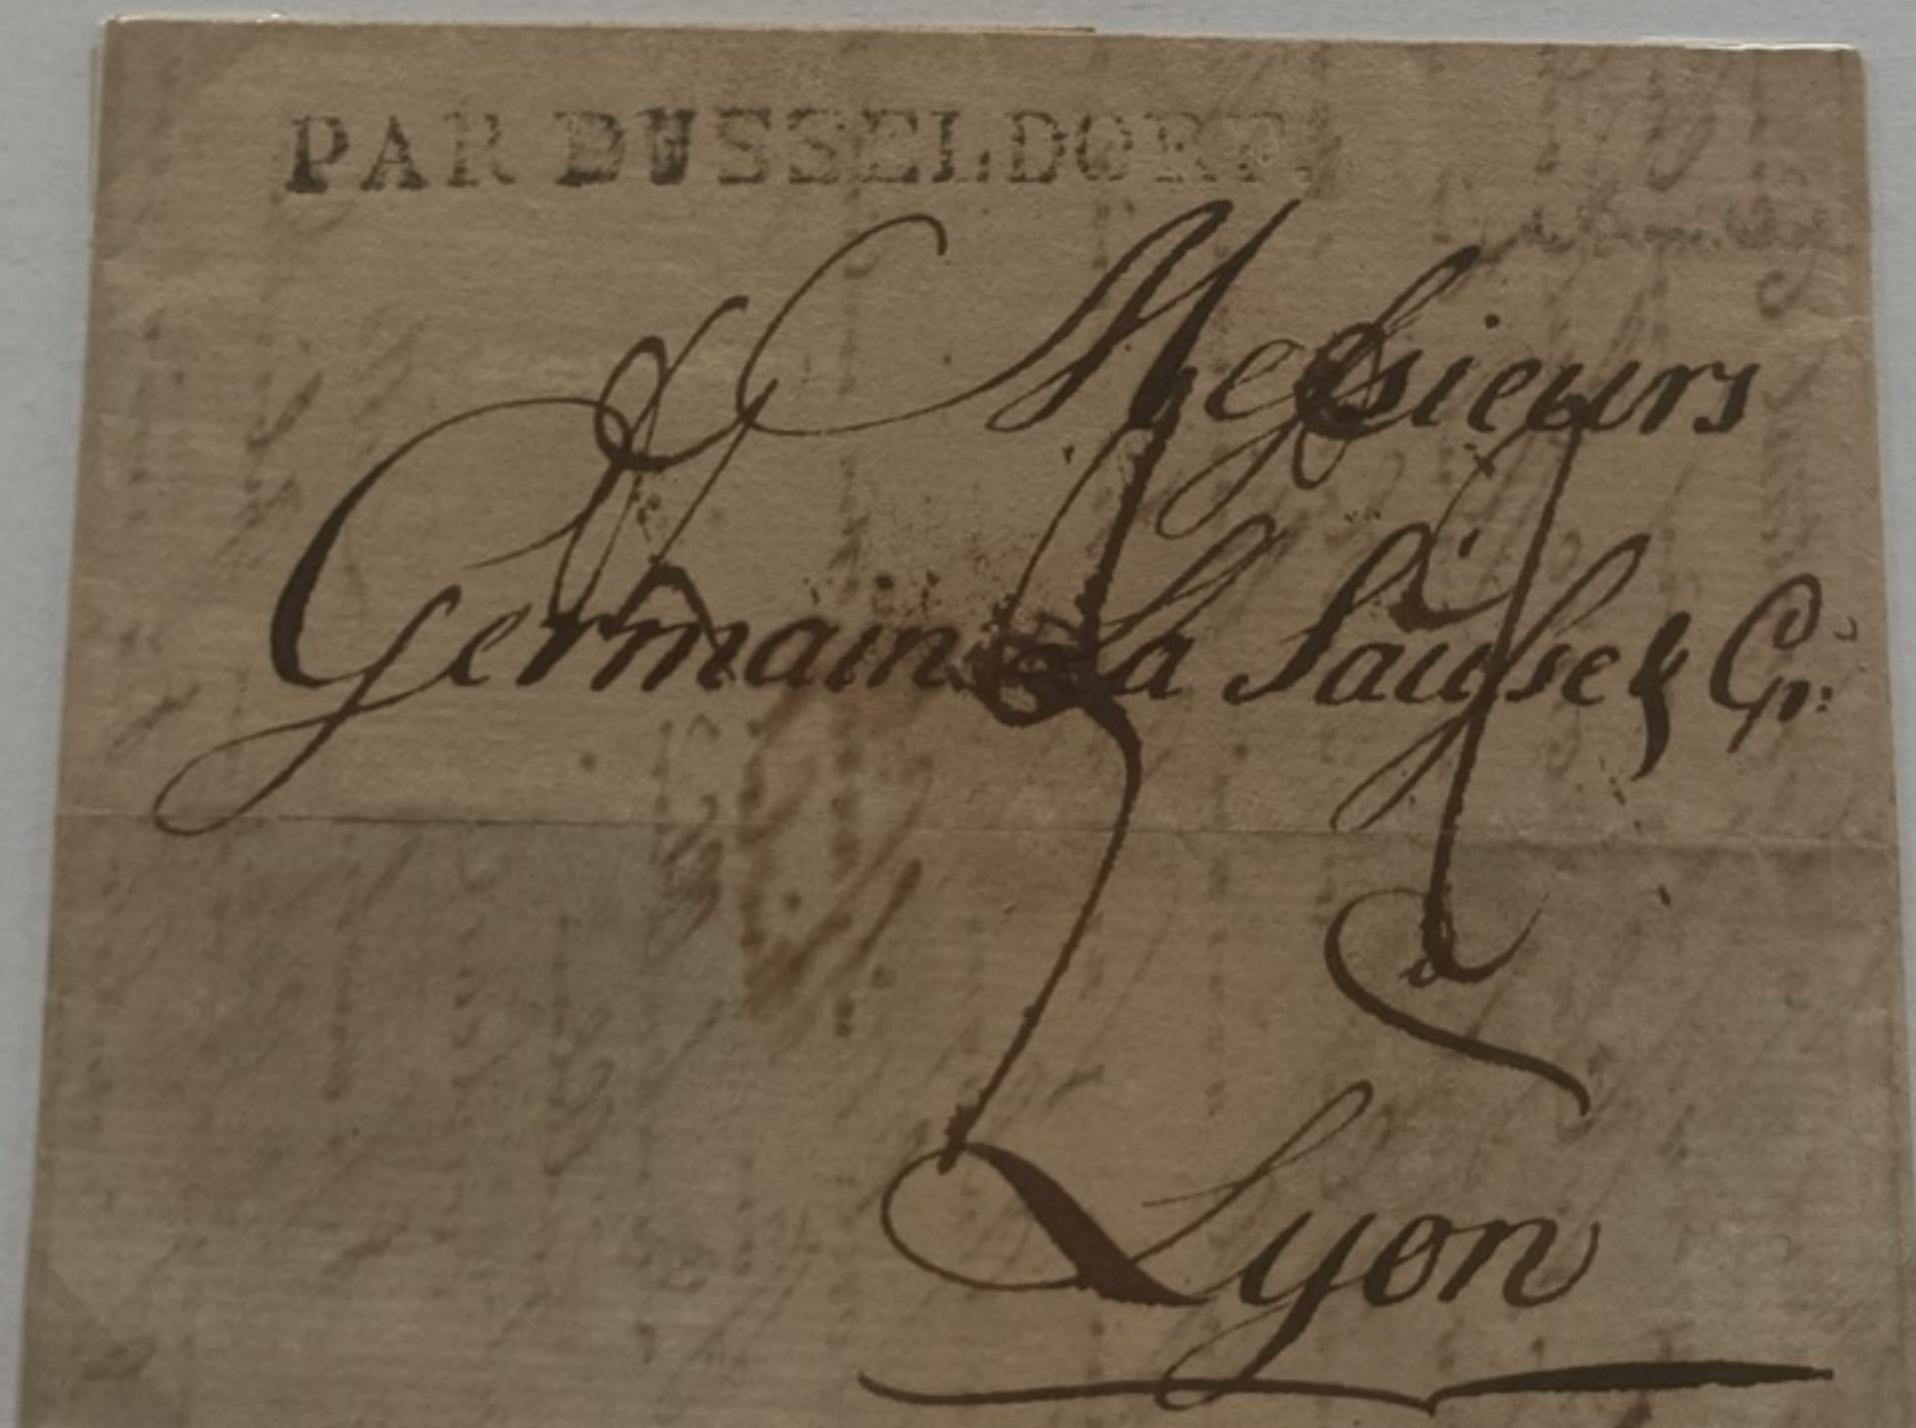 PAR DUSSELDORF.
Messieurs
Germain La Sausse & Cie:
Lyon